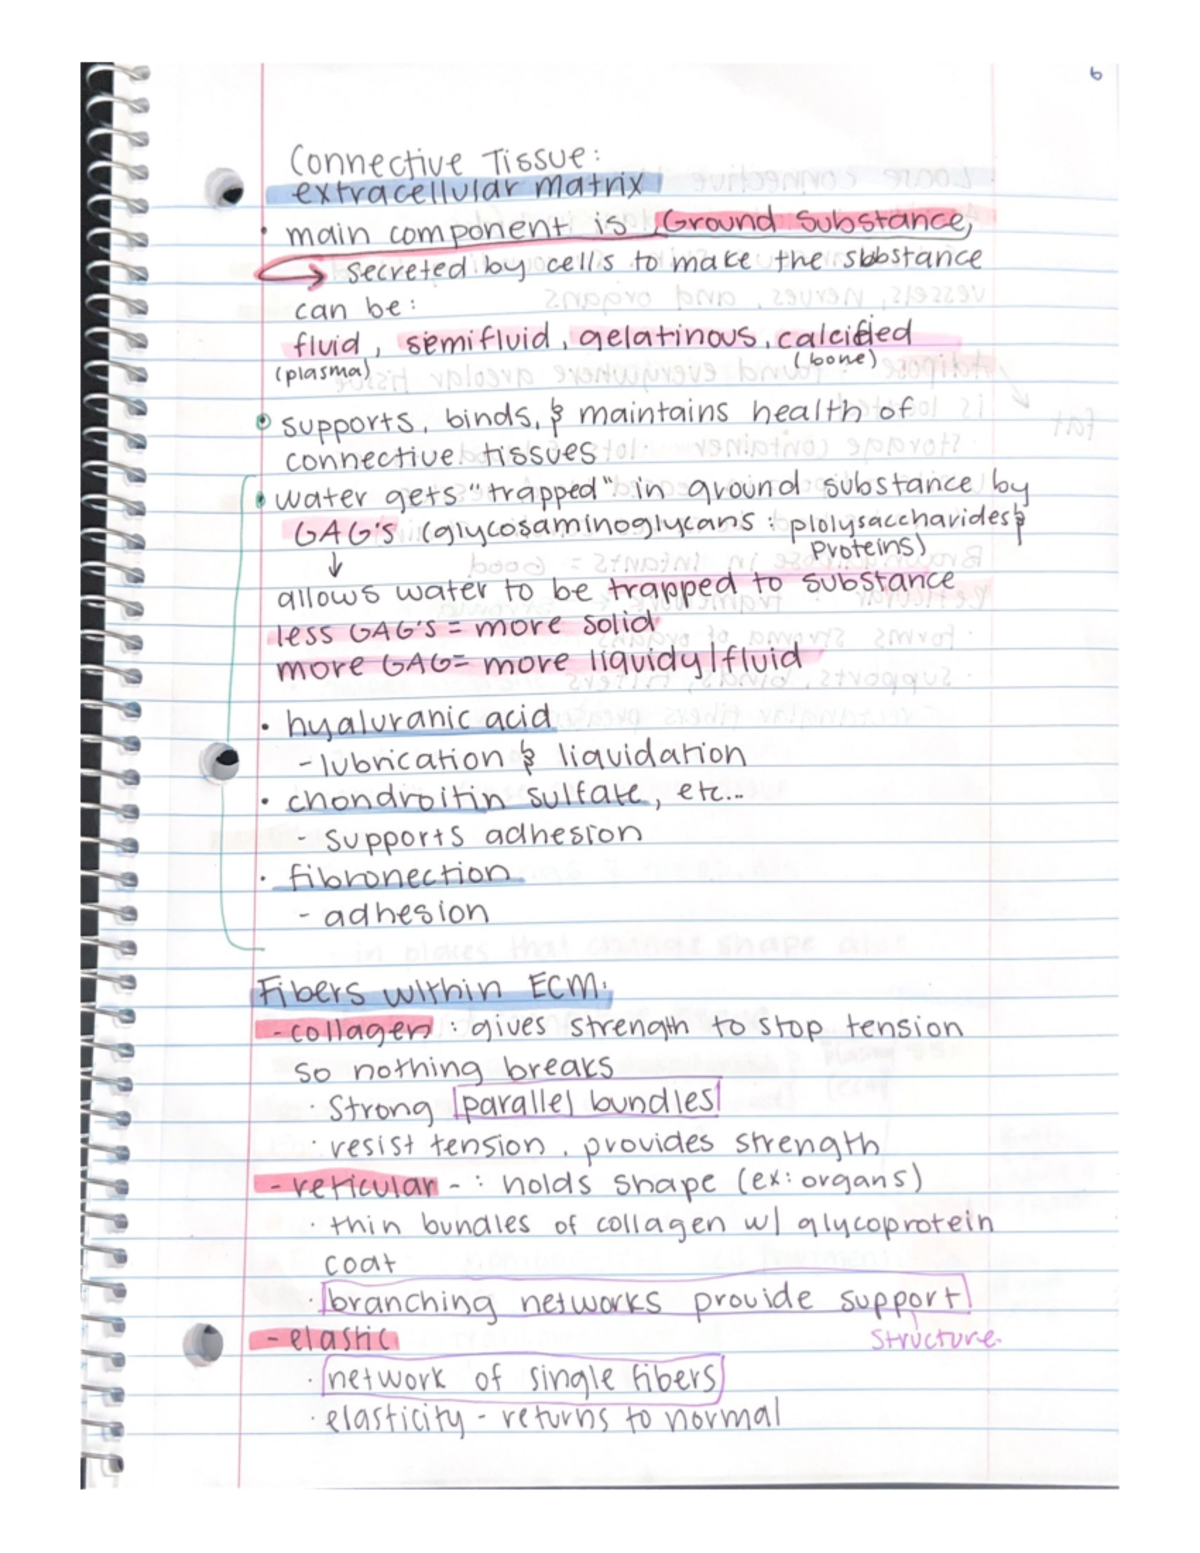 6
Connective Tissue:
extracellular matrix
• main component is Ground Substance,
→ secreted by cells to make the substance
can be:
fluid, semifluid, gelatinous, calcified
(plasma) (bone)
• supports, binds, & maintains health of
connective tissues
• water gets "trapped" in ground substance by
GAG's (glycosaminoglycans: plolysaccharides &
↓ Proteins)
allows water to be trapped to substance
less GAG's = more solid
more GAG = more liquidy/fluid
• hyaluranic acid
- lubrication & liquidation
• chondroitin sulfate, etc...
- supports adhesion
• fibronection
- adhesion
Fibers within ECM:
- collagen: gives strength to stop tension
so nothing breaks
• Strong parallel bundles
• resist tension, provides strength
- reticular - : holds shape (ex: organs)
• thin bundles of collagen w/ glycoprotein
coat
• branching networks provide support
structure.
- elastic
• network of single fibers
• elasticity - returns to normal